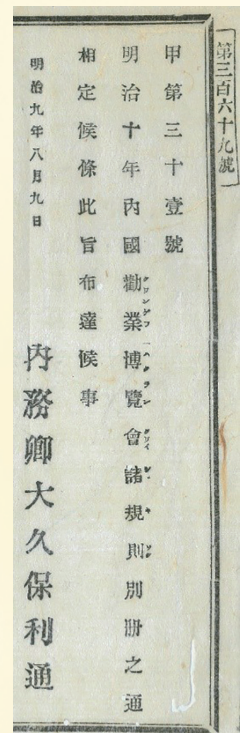 第三百六十九號
甲第三十壹號
明治十年內國勸業博覽會諸規則別冊之通
相定候條此旨布達候事
明治九年八月九日
內務卿大久保利通